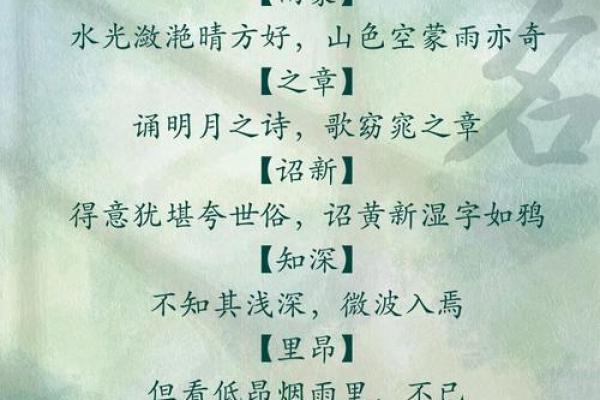 水光潋滟晴方好，山色空蒙雨亦奇
【之章】
诵明月之诗，歌窈窕之章
【诏新】
得意犹堪夸世俗，诏黄新湿字如鸦
【知深】
不知其浅深，微波入焉
【里昂】
但看低昂烟雨里，不已
名